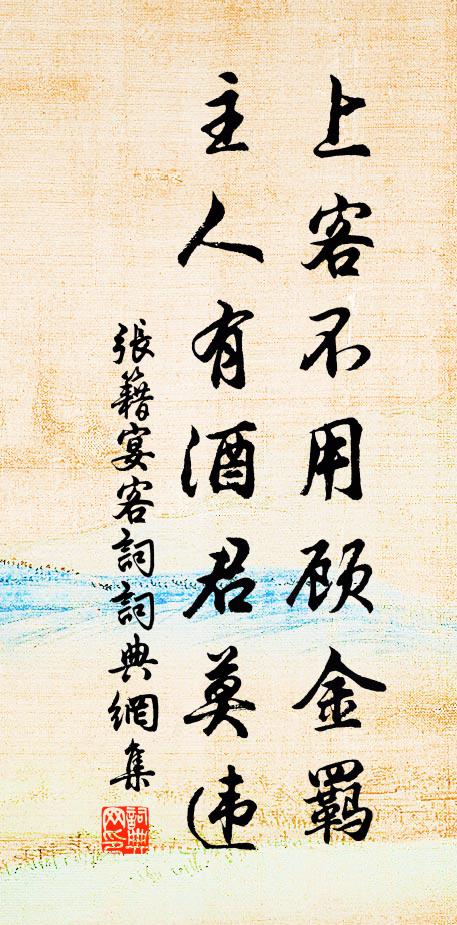 上客不用顾金羁
主人有酒君莫违
張籍宴客詞詞典網集
詞典網印